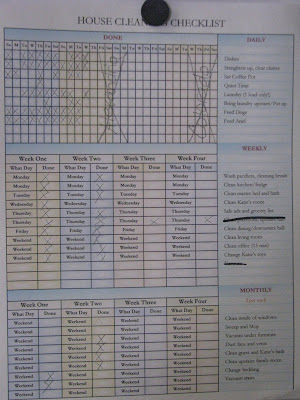 HOUSE CLEANING CHECKLIST
DONE DAILY
Su M T W Th F S Su M T W Th F S Su M T W Th F S Su M T W Th F S
Dishes
Straighten up, clear clutter
Set Coffee Pot
Quiet Time
Laundry (1 load only!)
Bring laundry upstairs/Put up
Feed Dogs
Feed Ariel
WEEKLY
Week One Week Two Week Three Week Four
What Day Done What Day Done What Day Done What Day Done
Monday Monday Monday Monday Wash pacifiers, cleaning breast
Monday Monday Monday Monday Clean kitchen/fridge
Tuesday Tuesday Tuesday Tuesday Clean master bed and bath
Wednesday Wednesday Wednesday Wednesday Clean Kate's room
Thursday Thursday Thursday Thursday Sale ads and grocery list
Thursday Thursday Thursday Thursday
Friday Friday Friday Friday Clean dining/downstairs hall
Weekend Weekend Weekend Weekend Clean living room
Weekend Weekend Weekend Weekend Clean office (15 min)
Weekend Weekend Weekend Weekend Change Kate's toys
MONTHLY
Week One Week Two Week Three Week Four
What Day Done What Day Done What Day Done What Day Done
Weekend Weekend Weekend Weekend Clean inside of windows
Weekend Weekend Weekend Weekend Sweep and Mop
Weekend Weekend Weekend Weekend Vacuum under furniture
Weekend Weekend Weekend Weekend Dust fans and vents
Weekend Weekend Weekend Weekend Clean guest and Kate's bath
Weekend Weekend Weekend Weekend Clean upstairs family room
Weekend Weekend Weekend Weekend Change bedding
Weekend Weekend Weekend Weekend Vacuum stairs